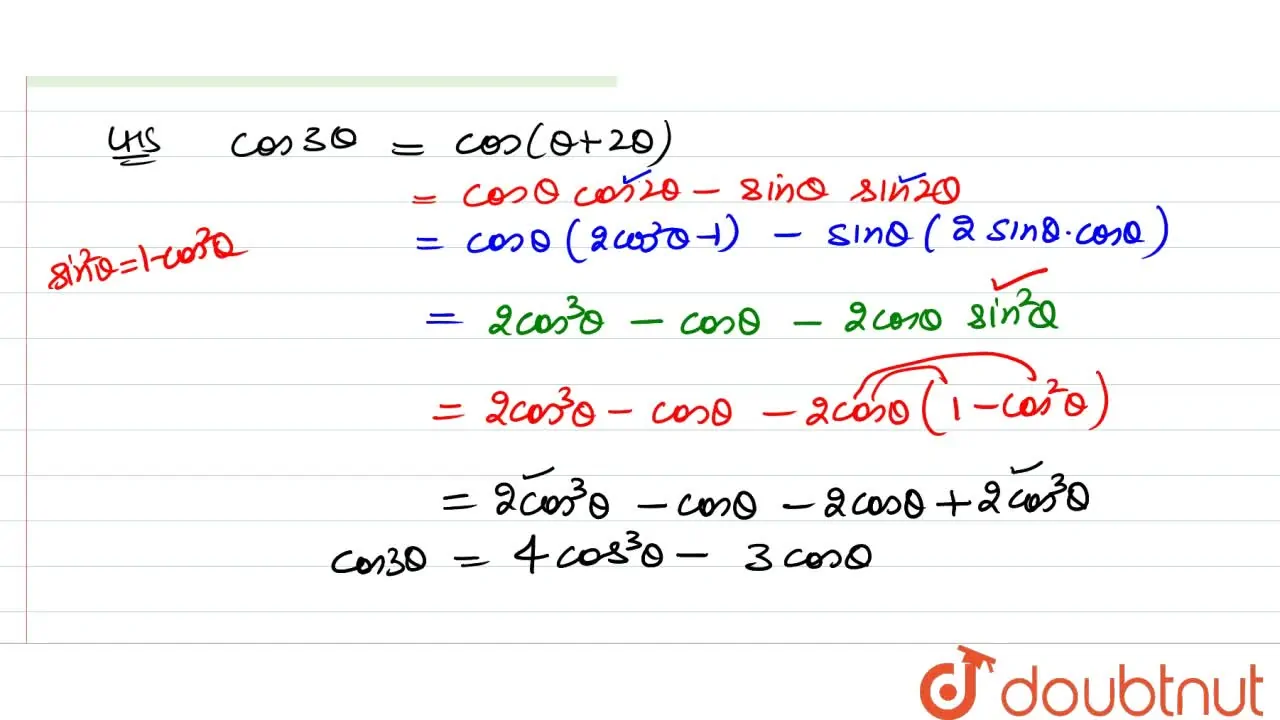 LHS cos3θ = cos(θ+2θ)
= cosθ cos2θ - sinθ sin2θ
= cosθ (2cos²θ-1) - sinθ (2 sinθ·cosθ)
sin²θ=1-cos²θ
= 2cos³θ - cosθ - 2cosθ sin²θ
= 2cos³θ - cosθ - 2cosθ (1-cos²θ)
= 2cos³θ - cosθ - 2cosθ + 2cos³θ
cos3θ = 4cos³θ - 3cosθ
doubtnut